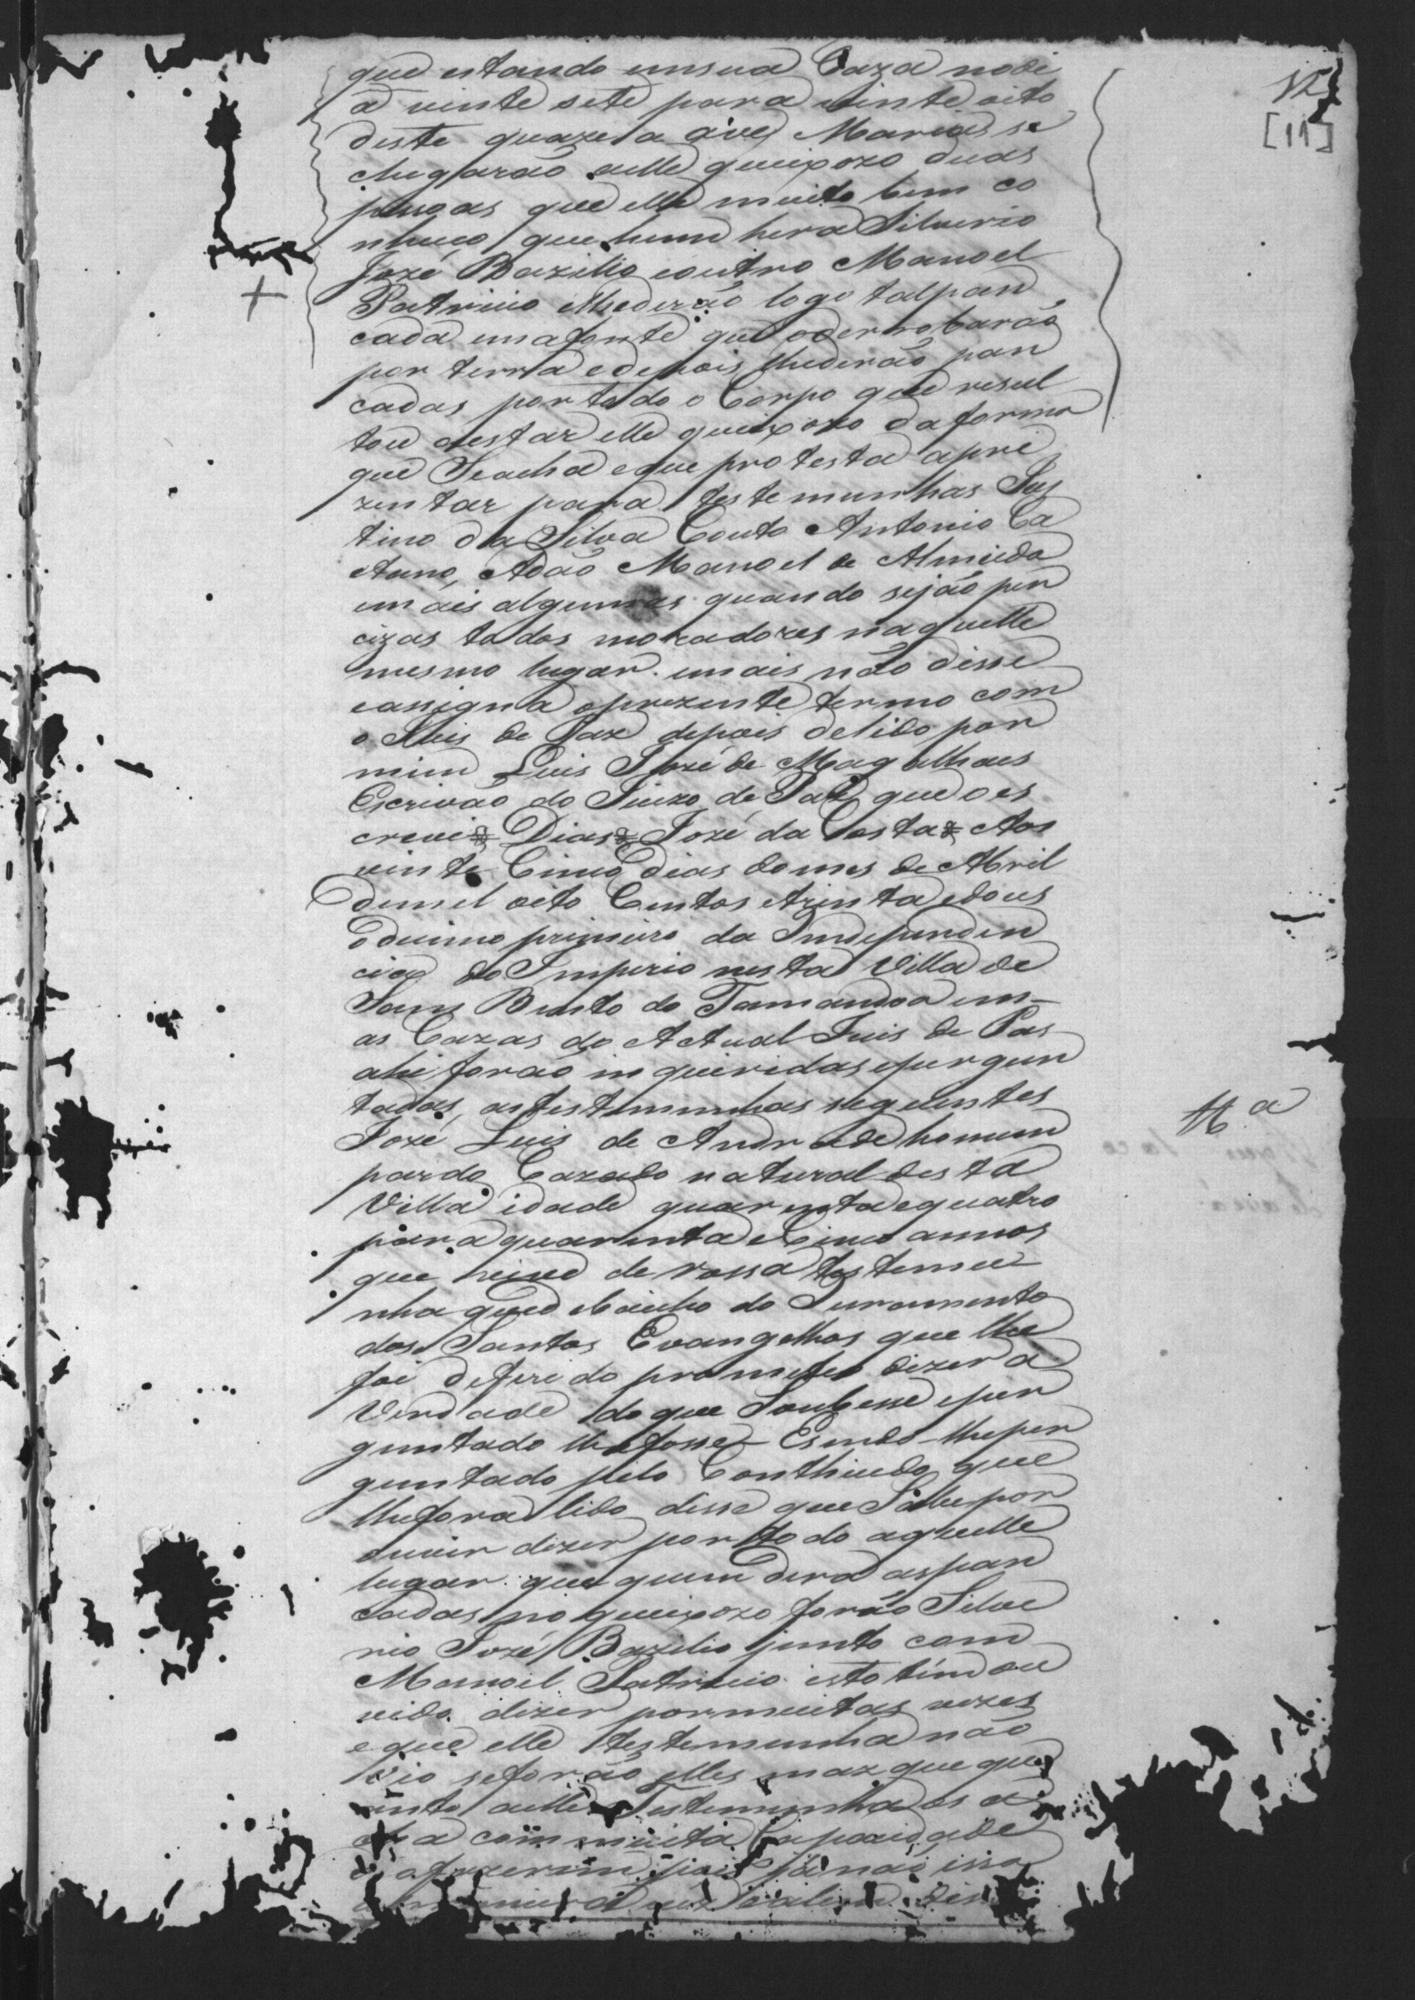 12
[11]
que estando em sua Caza no di
a vinte sete para vinte oito
deste quaze a ave Marias se
chegarão aelle queixozo duas
pessoas que elle muito bem co
nheceo que hum hera Silverio
José Bazilio eoutro Manoel
Patricio elhederão logo tal pan
cada em afonte que oderrobarão
por terra edepois lhederão pan
cadas por todo o Corpo que resul
tou aestar elle queixozo da forma
que Seacha eque protesta apre
zentar para testemunhas Jus
tino da Silva Couto Antonio Ca
etano, Adão Manoel de Almeida
emais algumas quando sejão per
cizas todos moradores naquelle
mesmo lugar. emais não disse
eassigna oprezente termo com
o Juis de Paz depois delido por
mim Luis José de Magalhaes
Escrivão do Juizo de Paz que o es
crevi Dias José da Costa Aos
vinte Cinco dias do mes de Abril
demil oito Centos etrinta edous
Decimo primeiro da Independen
cia do Imperio nesta Villa de
Sam Bento do Tamandoa em
as Cazas do Actual Juis de Pas
ahi forão inqueridas epergun
tadas, astestemunhas seguintes
Tta
José Luis de Andrade homem
pardo Cazado natural desta
Villa idade quarenta equatro
para quarenta eCinco annos
que vive de rossa testemu
nha que debaicho do Juramento
dos Santos Evangelhos que lhe
foi deferido prometeo dizer a
Verdade do que Soubesse eper
guntado lhe fosse Esendo lheper
guntado pelo Conthiudo que
lhefora lido disse que Sabe por
ouvir dizer por todo aquelle
lugar que quem dera aspan
cadas no queixozo forão Silve
rio José Bazilio junto com
Manoel Patricio isto tem ou
vido dizer por muitas vezes
eque elle testemunha não
vio seforão elles maz que qu
anto aelle Testemunha os a
cha com muita Capacidade
de ofazerem pois já não